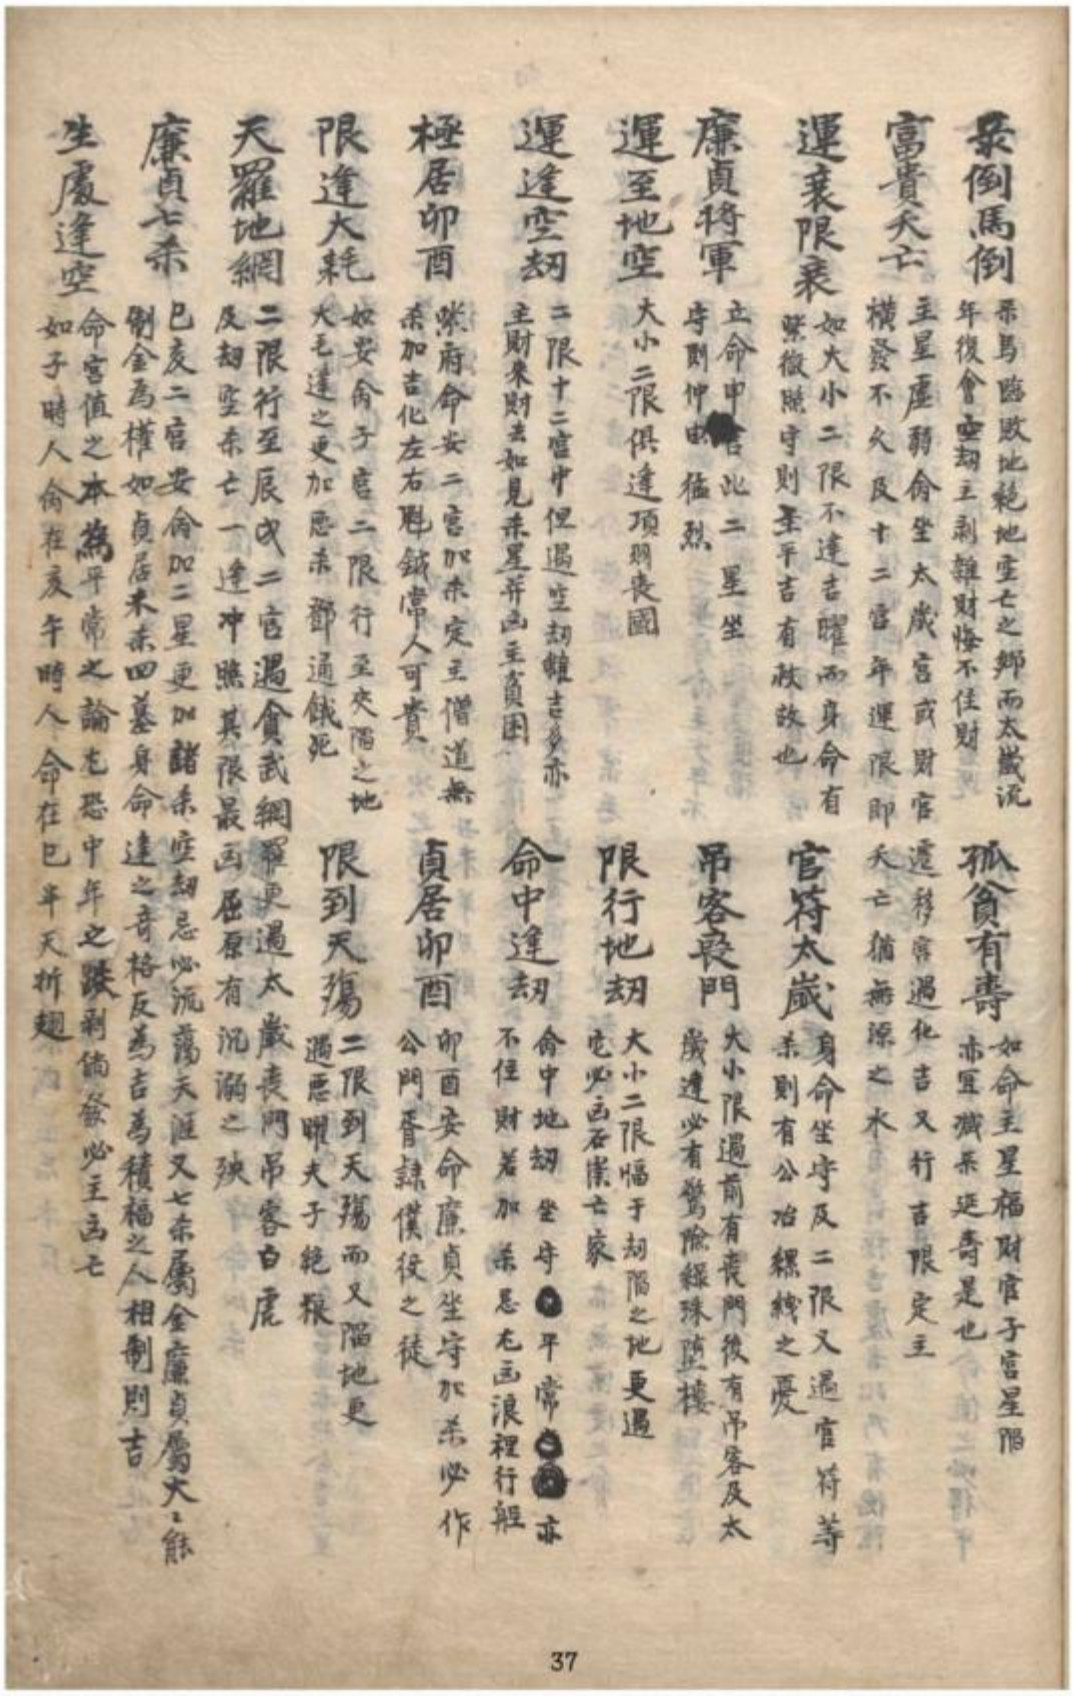 录倒馬倒
录馬臨敗地絕地空亡之鄉而太歲流
年後會空劫主剥雜財悔不住財
孤貧有壽
如命主星福財官子宮星陷
亦宜減录延壽是也
富貴夭亡
主星虛弱侖坐太歲宮或財官遷移宮過化吉又行吉限定主
橫發不久及十二宮年運限即夭亡猶無源之水
運衰限衰
如大小二限不逢吉曜而身命有
紫微照守則平吉有救故也
官符太歲
身命坐守及二限又遇官符等
杀則有公冶縲絏之憂
廉貞將軍
立命申宮此二星坐
守則仲由猛烈
吊客喪門
大小限遇前有喪門後有吊客及太
歲逢必有驚險綠珠墮樓
運至地空
大小二限俱逢項羽喪國
限行地劫
大小二限臨于劫陷之地更遇
它必凶石崇亡家
運逢空劫
二限十二宮中但遇空劫雖吉多亦
主財來財去如見杀星并凶主貧困
命中逢劫
侖中地劫坐守平常亦
不住財若加杀忌尤凶浪裡行船
極居卯酉
紫府命安二宮加杀定主僧道無
杀加吉化左右魁鉞常人可貴
貞居卯酉
卯酉安命廉貞坐守加杀必作
公門胥隸僕役之徒
限逢大耗
如安侖子宮二限行至夾陷之地
大耗逢之更加惡杀鄧通餓死
限到天殤
二限到天殤而又陷地更
遇惡曜夫子絕粮
天羅地網
二限行至辰戌二宮遇貪武網羅更遇太歲喪門吊客白虎
及劫空杀亡一逢冲照其限最凶屈原有沉溺之殃
廉貞七杀
巳亥二宮安侖加二星更加諸杀空劫忌必流蕩天涯又七杀屬金廉貞屬火火能
制金為權如貞居未杀四墓身命逢之奇格反為吉為積福之人相制則吉
生處逢空
命宮值之本為平常之論尤恐中年之跌剥倘發必主凶亡
如子時人侖在亥午時人命在巳半天折翅
37